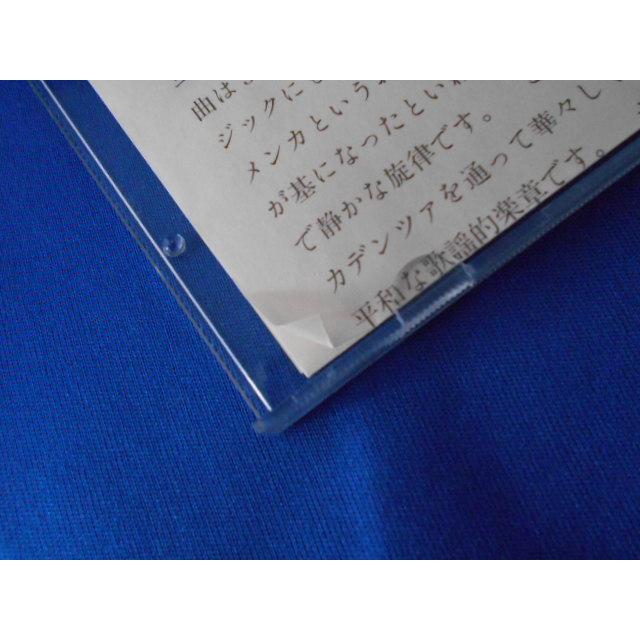 曲は
ジックに
メンカという
が基になったといわ
で静かな旋律です。
カデンツァを通って華々し
平和な歌謡的楽章です。